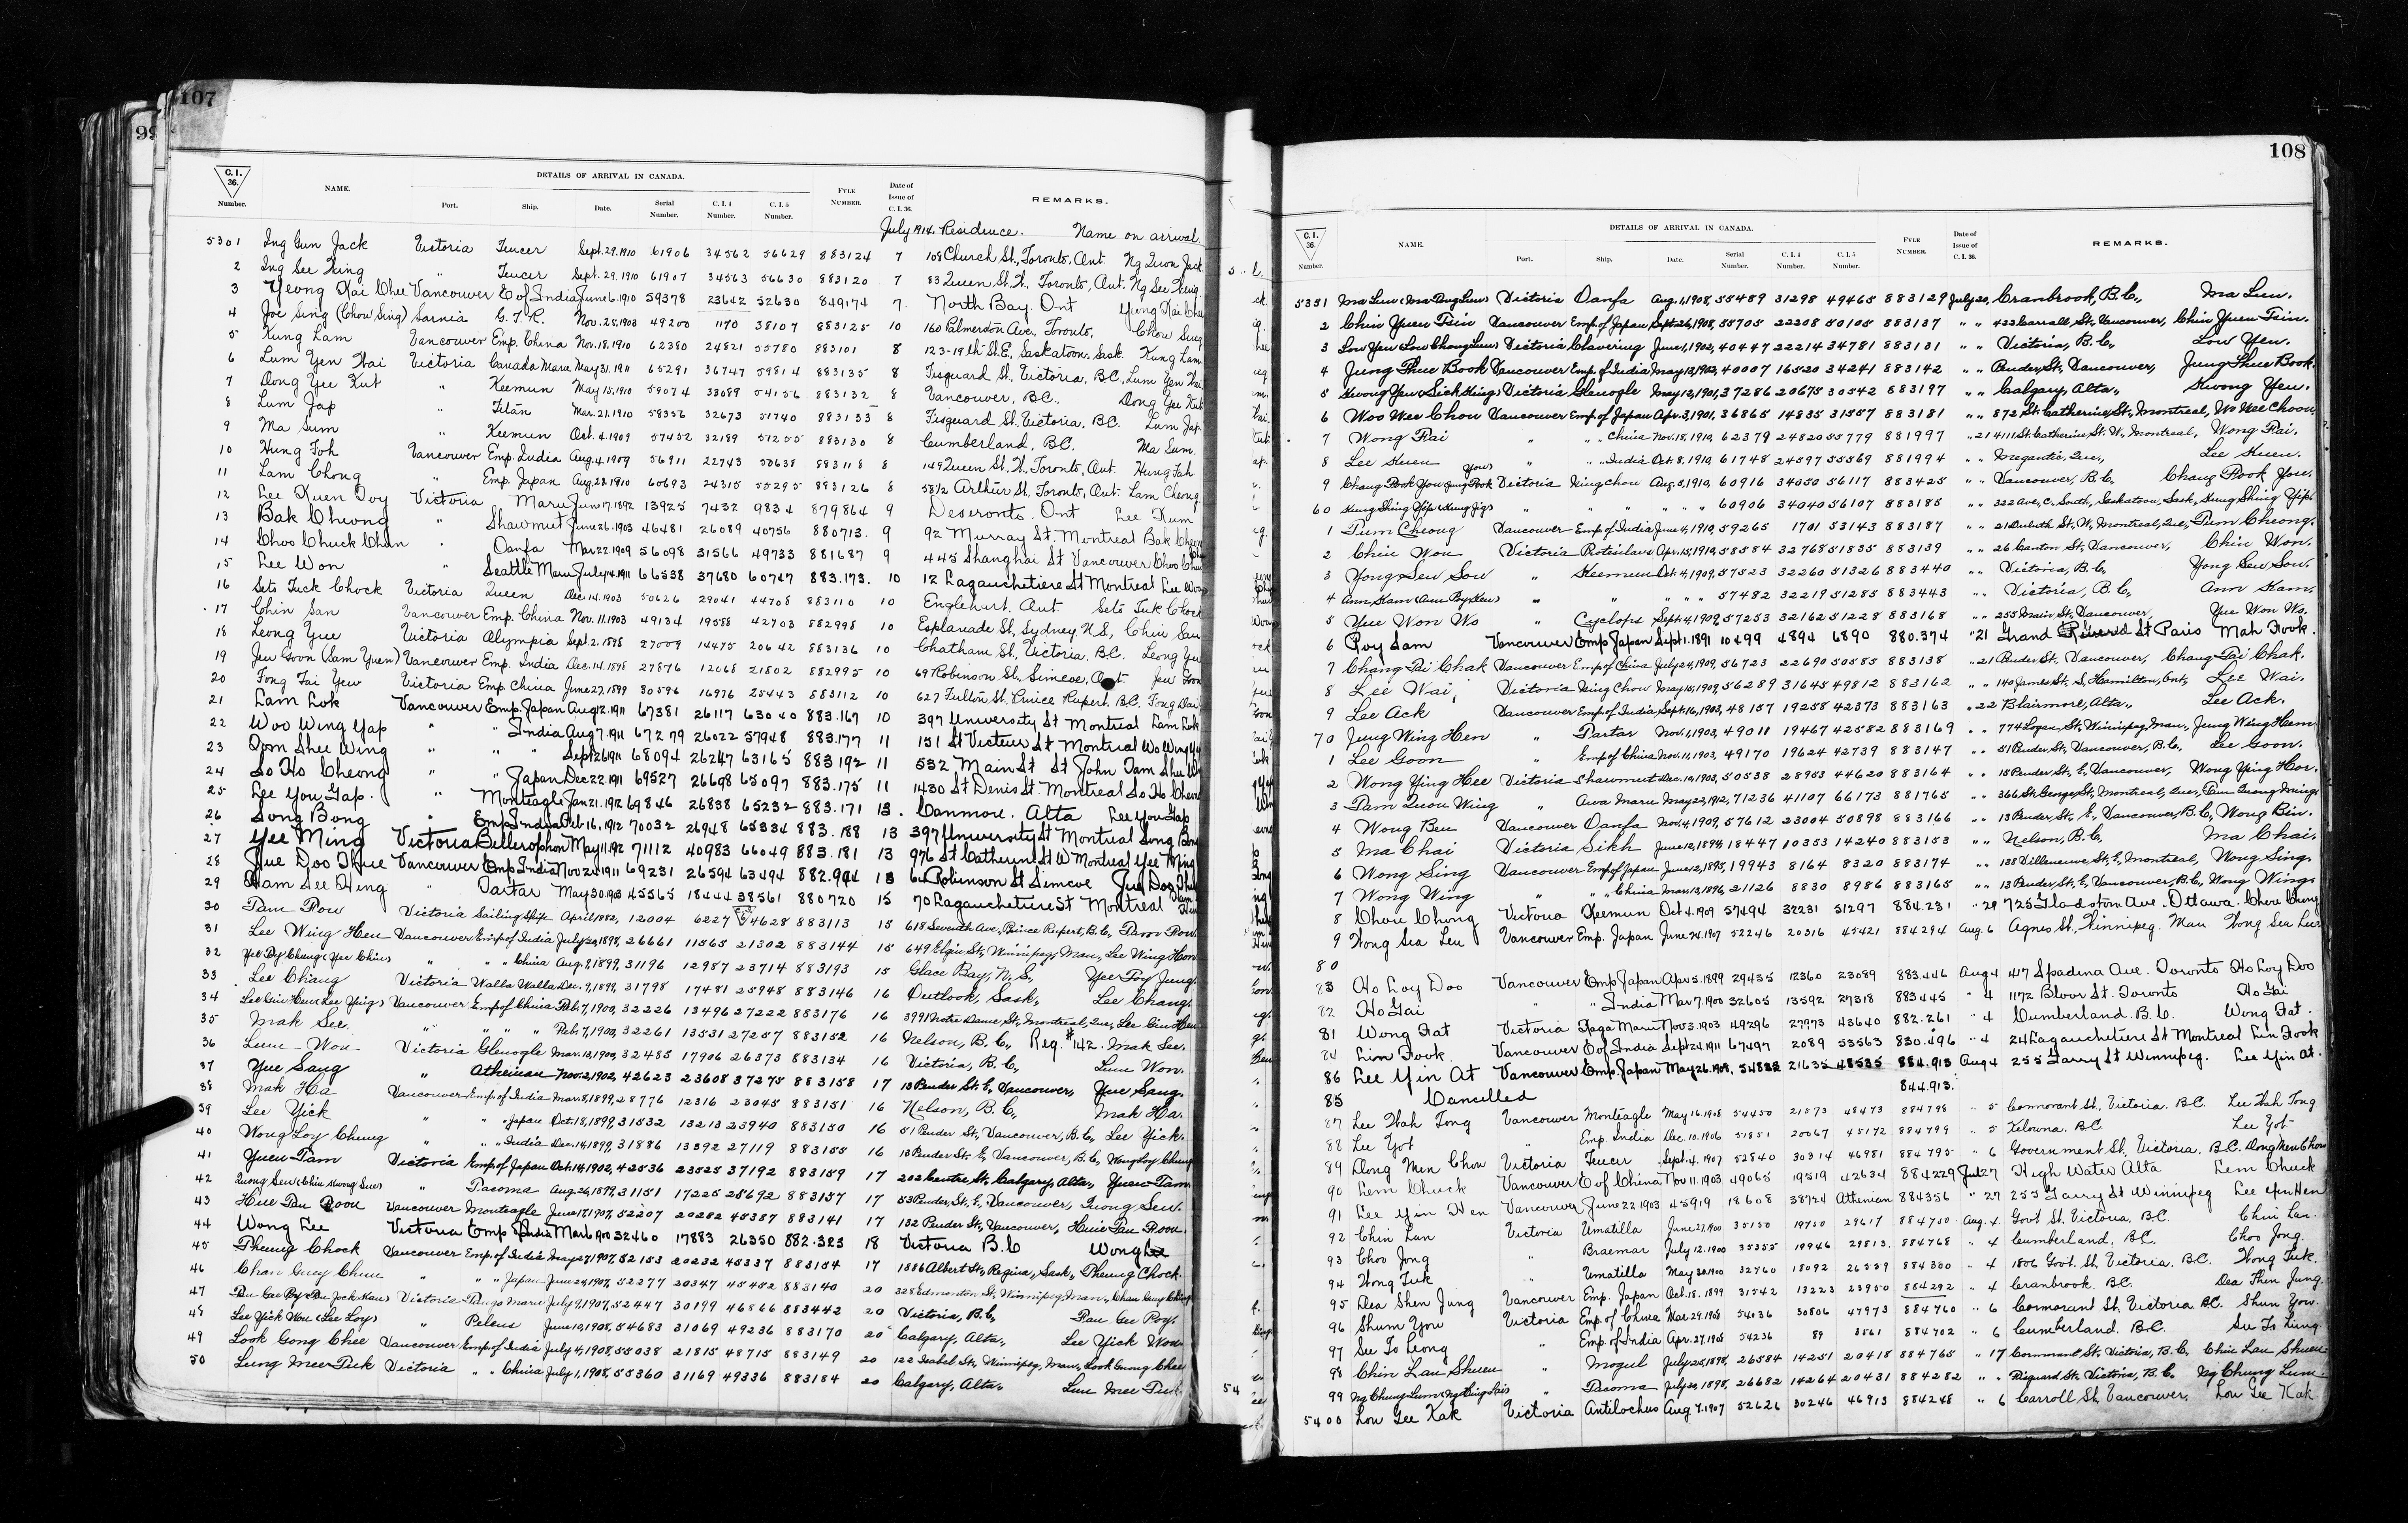 107
99
C. I. 36. Number. NAME. DETAILS OF ARRIVAL IN CANADA. Port. Ship. Date. Serial Number. C. I. 4 Number. C. I. 5 Number. FYLE NUMBER. Date of Issue of C. I. 36. REMARKS.
July 1914. Residence. Name on arrival.
5301 Ing Gun Jack Victoria Teucer Sept. 29. 1910 61906 34562 56629 883124 7 108 Church St., Toronto, Ont. Ng Quon Jack
2 Ing See King " Teucer Sept. 29. 1910 61907 34563 56630 883120 7 83 Queen St. W., Toronto, Ont. Ng See King
3 Yeong Kai Chee Vancouver E of India June 6. 1910 59378 23642 52630 849174 7. North Bay. Ont Yeung Kai Chee
4 Joe Sing (Chow Sing) Sarnia G. T. R. Nov. 25. 1903 49200 1170 38107 883125 10 160 Palmerston Ave., Toronto, Chow Sing
5 Kung Lam Vancouver Emp. China Nov. 18. 1910 62380 24821 55780 883101 8 123-19th St. E., Saskatoon, Sask. Kung Lam
6 Lum Yen Wai Victoria Canada Maru May 31. 1911 65291 36747 59814 883135 8 Fisguard St., Victoria, BC, Lum Yen Wai
7 Dong Yee Kut " Keemun May 15. 1910 59074 33089 54156 883132 8 Vancouver, BC., Dong Yee Kut
8 Lum Jap " Titan Mar. 21. 1910 58356 32673 51740 883133 8 Fisguard St. Victoria, BC. Lum Jap
9 Ma Sum " Keemun Oct. 4. 1909 57452 32189 51255 883130 8 Cumberland, BC. Ma Sum.
10 Hung Foh Vancouver Emp. India Aug. 4. 1909 56911 22743 50638 883118 8 149 Queen St. W., Toronto, Ont. Hung Fah
11 Lam Chong " Emp. Japan Aug. 28. 1910 60693 24315 55295 883126 8 58½ Arthur St., Toronto, Ont. Lam Cheong
12 Lee Kuen Doy Victoria Maru June 17. 1892 13925 7432 9834 879864 9 Deseronto. Ont Lee Kum
13 Bak Cheong " Shawmut June 26. 1903 46481 26089 40756 880713. 9 92 Murray St. Montreal Bak Cheong
14 Choo Chuck Chun " Oanfa Mar 22. 1909 56098 31566 49733 881687 9 445 Shanghai St Vancouver Choo Chuck
15 Lee Won " Seattle Maru July 14. 1911 66538 37680 60747 883.173. 10 12 Lagauchetiere St Montreal Lee Wong
16 Seto Tuck Chock Victoria Queen Dec. 14. 1903 50626 29041 44708 883110 10 Englehart. Ont Seto Tuk Chock
17 Chin San Vancouver Emp. China Nov. 11. 1903 49134 19588 42703 882998 10 Esplanade St., Sydney. N.S., Chin San
18 Leong Yue Victoria Olympia Sept. 2. 1898 27009 14475 20642 883136 10 Chatham St., Victoria, BC. Leong Yu
19 Jeu Goon (Sam Yuen) Vancouver Emp. India Dec. 14. 1898 27876 12068 21802 882995 10 69 Robinson St., Simcoe, Ont Jeu Goon
20 Fong Tai Yew Victoria Emp. China June 27, 1899 30596 16976 25443 883112 10 627 Fulton St. Prince Rupert, BC. Fong Dai
21 Lam Lok Vancouver Emp. Japan Aug 12. 1911 67381 26117 63040 883.167 10 397 University St Montreal Lam Lok
22 Woo Wing Yap " " India Aug 7. 1911 67279 26022 57948 883.177 11 151 St Victeur St Montreal Wo Wing Ya
23 Dom Shee Wing " " " Sept 26 1911 68094 26247 63165 883192 11 532 Main St St John Tam Shu W
24 So Ho Cheong " " Japan Dec 22. 1911 69527 26698 65097 883.175 11 1430 St Denis St. Montreal So Ho Cheong
25 Lee You Gap. " Monteagle Jan 21. 1912 69846 26838 65232 883.171 13. Canmore. Alta Lee You Gap
26 Song Bong " Emp India Feb 16, 1912 70032 26948 65334 883.188 13 397 University St Montreal Song Bong
27 Yee Ming Victoria Bellerophon May 11. 1912 71112 40983 66049 883.181 13 976 St Catherine St W Montreal Yee Ming
28 Jue Doo Thue Vancouver Emp India Nov 24 1911 69231 26594 63494 882.994 13 64 Robinson St Simcoe Jue Doo Thu
29 Ham See Hing " Tartar May 30. 1903 45565 18444 38561 880720 15 70 Lagauchetiere St Montreal
30 Tam Pow Victoria Sailing Ship April 1882, 12004 6227 4628 883113 15 618 Seventh Ave., Prince Rupert, B.C. Tam Pow.
31 Lee Wing Hen Vancouver Emp of India July 20, 1898, 26661 11565 21302 883144 15 649 Elgin St., Winnipeg, Man., Lee Wing Hon
32 Yee By Chung (Yee Chin) " " " China Aug. 9, 1899, 31196 12987 23714 883193 15 Glace Bay, N.S., Yee Foy Jung.
33 Lee Chang Victoria Walla Walla Dec. 9, 1899, 31798 17481 25948 883146 16 Outlook, Sask., Lee Chang.
34 Lee Gin Hen (Lee Ying) Vancouver Emp of China Feb. 7, 1900, 32226 13496 27222 883176 16 3991 Notre Dame St., Montreal, Que., Lee Gin Hen
35 Mak See. " " " " Feb. 7, 1900, 32261 13531 27257 883152 16 Nelson, B.C., Reg. #142. Mak See.
36 Lum Won Victoria Glenogle Mar. 13, 1900, 32485 17906 26373 883134 16 Victoria, B.C., Lum Won.
37 Yue Sang " Athenian Nov. 2, 1902, 42623 23608 37275 883158 17 13 Pender St. E., Vancouver, Yue Sang.
38 Mak Ha Vancouver Emp of India Mar. 8, 1899, 28776 12316 23045 883151 16 Nelson, B.C., Mak Ha.
39 Lee Yick " " " Japan Oct. 18, 1899, 31532 13213 23940 883150 16 51 Pender St., Vancouver, B.C., Lee Yick.
40 Wong Loy Chung " " " India Dec. 14, 1899, 31886 13392 27119 883155 16 13 Pender St. E., Vancouver, B.C., Wong Loy Chung
41 Yuen Tam Victoria Emp of Japan Oct. 14, 1902, 42536 23525 37192 883159 17 202 Centre St., Calgary, Alta., Yuen Tam.
42 Quong Sen (Chin Kwong Sun) " Tacoma Aug. 26, 1899, 31151 17225 25692 883157 17 53 Pender, St., E., Vancouver, Quong Sen.
43 Hue Pau Poon Vancouver Monteagle June 17, 1907, 52207 20282 45387 883141 17 132 Pender St., Vancouver, Huie Pau Poon.
44 Wong Lee Victoria Emp India Mar 6 1900 32460 17883 26350 882.323 18 Victoria B.C Wong Lee
45 Pheung Chock Vancouver Emp. of India May 27, 1907, 52153 20232 45337 883154 17 1886 Albert St., Regina, Sask., Pheung Chock.
46 Chan Guey Chun " " " Japan June 24, 1907, 52277 20347 45452 883140 20 328 Edmonton St., Winnipeg, Man.,
47 Victoria Tango Maru July 9, 1907, 52447 30199 46866 883442 20 Victoria, B.C., Pau Gee Poy.
48 Lee Yick Won (Lee Loy) " Peleus June 10, 1908, 54683 31069 49236 883170 20 Calgary, Alta., Lee Yick Won.
49 Look Gong Chee Vancouver Emp. of India July 4, 1908, 55038 21815 48715 883149 20 122 Isabel St., Winnipeg, Man., Look Guong Chee
50 Lung Mee Tuk Victoria " " China July 1, 1908, 55360 31169 49336 883184 20 Calgary, Alta., Lum Mee Tuk.
108
C. I. 36. Number. NAME. DETAILS OF ARRIVAL IN CANADA. Port. Ship. Date. Serial Number. C. I. 4 Number. C. I. 5 Number. FYLE NUMBER. Date of Issue of C. I. 36. REMARKS.
5351 Ma Lun (Ma Dug Lun) Victoria Oanfa Aug. 1, 1908, 55489 31298 49465 883129 July 20, Cranbrook, B.C., Ma Lun.
2 Chin Yuen Tsin Vancouver Emp. of Japan Sept. 26, 1908, 55705 22208 50105 883137 " " 422 Carrall, St., Vancouver, Chin Yuen Tsin.
3 Low Yen (Low Chong Lun) Victoria Clavering June 1, 1902, 40447 22214 34781 883131 " " Victoria, B.C., Low Yen.
4 Jung Thue Book Vancouver Emp. of India May 13, 1902, 40007 16520 34241 883142 " " Pender, St., Vancouver, Jung Thue Book.
5 Kwong Yen (Sick Hing) Victoria Glenogle May 12, 1901, 37286 20675 30542 883197 " " Calgary, Alta., Kwong Yen.
6 Woo Wee Chou Vancouver Emp. of Japan Apr. 3, 1901, 36865 14835 31557 883181 " " 872 St. Catherine St., Montreal, Wo Wee Choou
7 Wong Fai " " " China Nov. 18, 1910, 62379 24820 55779 881997 " 21 4111 St. Catherine St. W., Montreal, Wong Fai.
8 Lee Kuen " " " India Oct. 8, 1910, 61748 24597 55569 881994 " " Megantic, Que., Lee Kuen.
9 Chang Pook You (Jung Pook You) Victoria Ning Chow Aug. 5, 1910, 60916 34050 56117 883425 " " Vancouver, B.C., Chang Pook You.
60 Kung Shing Yip (Kung Jip) " " " " " 60906 34040 56107 883185 " " 322 Ave. C. South, Saskatoon, Sask., Kung Shing Yip.
1 Tum Cheong Vancouver Emp. of India June 4, 1910, 59265 1701 53143 883187 " " 21 Duluth St., W., Montreal, Que., Tum Cheong.
2 Chin Won Victoria Protesilaus Apr. 15, 1910, 58584 32768 51835 883139 " " 26 Canton St., Vancouver, Chin Won.
3 Yong Seu Sou " Keemun Oct. 4, 1909, 57523 32260 51326 883440 " " Victoria, B.C., Yong Seu Sou.
4 Ann Kam (Ann By Ken) " " " " " 57482 32219 51285 883443 " " Victoria, B.C., Ann Kam.
5 Yue Won Wo " Cyclops Sept. 4, 1909, 57253 32162 51228 883168 " " 255 Main St., Vancouver, Yue Won Wo.
6 Roy Sam Vancouver Emp Japan Sept 1. 1891 10499 4894 6890 880.374 " 21 Grand River St Paris Mah Fook.
7 Chang Tai Chak Vancouver Emp. of China July 24, 1909, 56723 22690 50585 883138 " 21 Pender St., Vancouver, Chang Tai Chak.
8 Lee Wai, Victoria Ning Chow May 15, 1909, 56289 31645 49812 883162 " " 140 James St., S., Hamilton, Ont., Lee Wai.
9 Lee Ack Vancouver Emp. of India, Sept. 16, 1903, 48157 19258 42373 883163 " 22 Blairmore, Alta., Lee Ack.
70 Jung Wing Hen " Tartar Nov. 1, 1903, 49011 19467 42582 883169 " " 774 Logan, St., Winnipeg, Man., Jung Wing Hem.
1 Lee Goon " Emp of China Nov. 11, 1903, 49170 19624 42739 883147 " " 51 Pender St., Vancouver, B.C., Lee Goon.
2 Wong Ying Hee Victoria Shawmut Dec. 10, 1903, 50538 28953 44620 883164 " " 15 Pender St., E., Vancouver, Wong Ying Hor.
3 Tam Quou Wing " Awa Maru May 22, 1912, 71236 41107 66173 881765 " " 366 St. George St., Montreal, Que., Tam Quong Wing
4 Wong Ben Vancouver Oanfa Nov. 4, 1909, 57612 23004 50898 883166 " " 13 Pender, St., E., Vancouver, B.C., Wong Bin.
5 Ma Chai Victoria Sikh June 12, 1894, 18447 10353 14240 883153 " " Nelson, B.C., Ma Chai.
6 Wong Sing Vancouver Emp of Japan June 12, 1895, 19943 8164 8320 883174 " " 138 Villeneuve, St., E., Montreal, Wong Sing.
7 Wong Wing " " " China Mar. 13, 1896, 21126 8830 8986 883165 " " 13 Pender, St., E., Vancouver, B.C., Wong Wing.
8 Chou Chung Victoria Keemun Oct 4. 1909 57494 32231 51297 884.231 " 29 725 Gladstone Ave. Ottawa. Chou Chung
9 Wong Sea Leu Vancouver Emp. Japan June 24. 1907 52246 20316 45421 884294 Aug. 6 Agnes St., Winnipeg. Man. Wong Sea Lee
80
83 Ho Loy Doo Vancouver Emp Japan Apr 5. 1899 29435 12360 23089 883.446 Aug 4 417 Spadina Ave. Toronto Ho Loy Doo
82 Ho Gai " " India Mar 7. 1900 32605 13592 27318 883445 " 4 1172 Bloor St. Toronto Ho Gai
81 Wong Fat Victoria Kaga Maru Nov 3. 1903 49296 27973 43640 882.261 " 4 Cumberland. B.C. Wong Fat.
84 Lim Fook Vancouver E of India Sept 24 1911 67497 2089 53563 830.496 " 4 24 Lagauchetiere St Montreal Lim Fook
86 Lee Yin At Vancouver Emp Japan May 26. 1908. 54832 21635 48535 884.913 Aug 4 255 Garry St Winnipeg. Lee Yin At.
844.913.
85 Cancelled
87 Lee Wah Tong Vancouver Monteagle May 16. 1908 54450 21573 48473 884798 " 5 Cormorant St., Victoria. B.C. Lee Wah Tong
88 Lee Yot " Emp. India Dec. 10. 1906 51851 20067 45172 884799 " 5 Kelowna. BC Lee Yot
89 Dong Men Chou Victoria Teucer Sept. 4. 1907 52840 30314 46981 884795 " 6 Government St., Victoria. B.C. Dong Men Chou
90 Lem Chuck Vancouver E of China Nov 11. 1903 49065 19519 42634 884229 July 27 High Water Alta Lem Chuck
91 Lee Yin Hen Vancouver June 22 1903 45919 18608 38724 Athenian 884356 " 27 253 Garry St Winnipeg Lee Yin Hen
92 Chin Lan Victoria Umatilla June 27. 1900 35150 19750 29617 884750 Aug. 4 Govt St. Victoria, BC. Chin Lan.
93 Choo Jong " Braemar July 12. 1900 35355 19946 29813. 884768 " 4 Cumberland, BC. Choo Jong.
94 Wong Tuk " Umatilla May 30. 1900 32760 18092 26559 884300 " 4 1806 Govt. St. Victoria. BC. Wong Tuk.
95 Dea Shen Jung Vancouver Emp. Japan Oct. 18. 1899 31542 13223 23950 884292 " 4 Cranbrook BC. Dea Shen Jung.
96 Shum You Victoria Emp. of China Mar. 29. 1908 54036 30806 47973 884760 " 6 Cormorant St. Victoria BC. Shun You.
97 See To Leong " Emp of India Apr. 27. 1908 54236 89 3561 884702 " 6 Cumberland. BC. See To Lung.
98 Chin Lau Shuen " Mogul July 25, 1898, 26584 14251 20418 884765 " 17 Cormorant St., Victoria, B.C., Chin Lau Shuen.
99 Ng Chung Lum " Tacoma July 20, 1898, 26682 14264 20431 884282 " " Fisguard St., Victoria, B.C. Ng Chung Lum.
5400 Lou Gee Kak Victoria Antilochus Aug 7. 1907 52626 30246 46913 884248 " 6 Carroll St, Vancouver. Lou Gee Kak